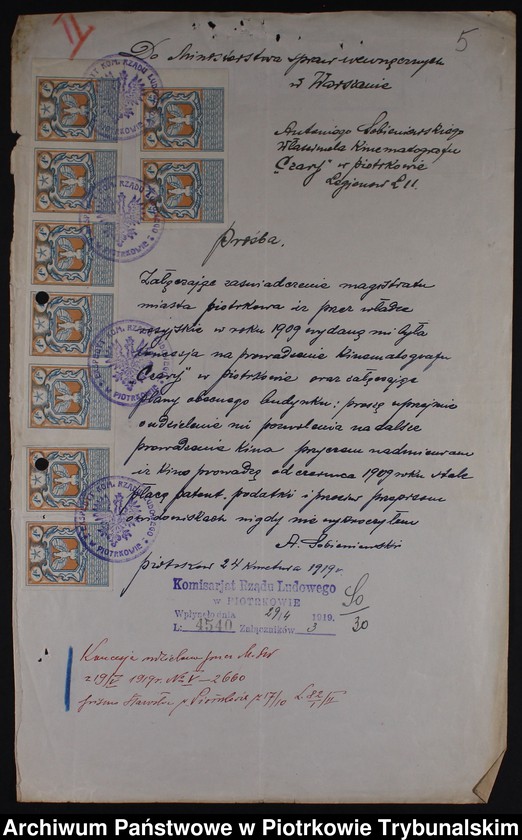 II
5
Do Ministerstwa Spraw wewnęcznych
w Warszawie
Antoniego Sobieniewskiego
Właściciela Kinematografu
"Czary" w piotrkowie
Legionów L 11.
Prośba.
Załączając zaświadczenie magistratu
miasta piotrkowa iż przez władze
rosyjskie w roku 1909 wydaną mi była
koncesja na prowadzenie Kinematografu
"Czary" w piotrkowie oraz załączając
plany obecnego budynku: proszę uprzejmie
o udzielenie mi pozwolenia na dalsze
prowadzenie kina przyczem nadmieniam
iż kino prowadzę od czerwca 1909 roku stale
płacę patent, podatki i przeciw przepisom
o widowiskach nigdy nie wykroczyłem
A. Sobieniewski
piotrków 24 Kwietnia 1919 r.
Komisarjat Rządu Ludowego
w PIOTRKOWIE
Wpłynęło dnia 29/4 1919.
L: 4540 Załączników 3
30
Koncesja udzielona przez M.S.W
z 19/V 1919 r. № V - 2660
pismo Starostwa p. Piotrkowie z 17/10 L. 82/1/II
Archiwum Państwowe w Piotrkowie Trybunalskim